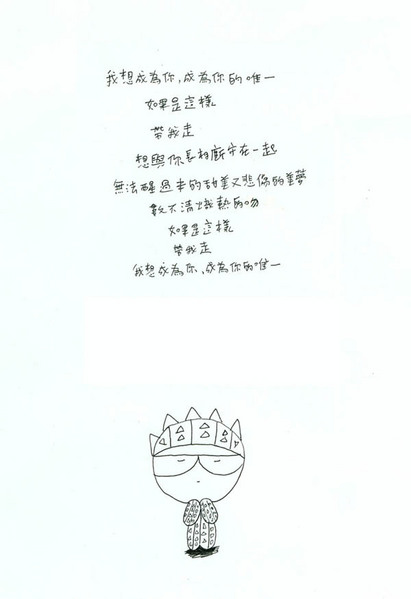 我想成為你,成為你的唯一
如果是這樣
帶我走
想與你長相廝守在一起
無法醒過來的甜蜜又悲傷的噩夢
數不清熾熱的吻
如果是這樣
帶我走
我想成為你,成為你的唯一